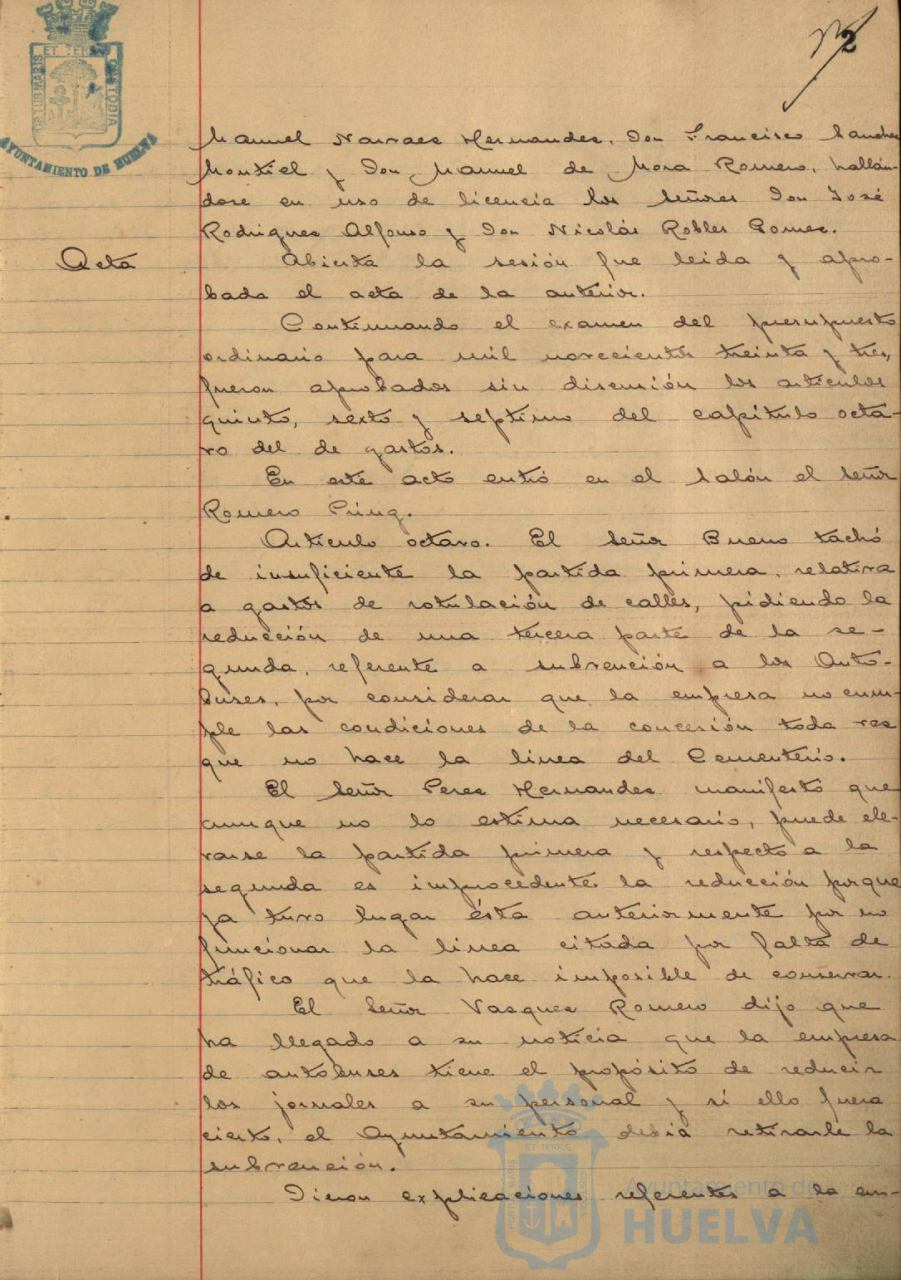 Nº 2
PORTUS MARIS ET TERRAE CUSTODIA
AYUNTAMIENTO DE HUELVA
Manuel Narvaez Hernandez, Don Francisco Sanchez
Montiel y Don Manuel de Mora Romero, hallán-
dose en uso de licencia los señores Don José
Rodriguez Alfonso y Don Nicolás Robles Gomez.
Acta
Abierta la sesión fue leida y apro-
bada el acta de la anterior.
Continuando el examen del presupuesto
ordinario para mil novecientos treinta y tres,
fueron aprobados sin discusión los articulos
quinto, sexto y septimo del capítulo octa-
vo del de gastos.
En este acto entró en el Salón el Señor
Romero Prinz.
Articulo octavo. El Señor Bueno tachó
de insuficiente la partida primera, relativa
a gastos de rotulación de calles, pidiendo la
reducción de una tercera parte de la se-
gunda, referente a subvención a los Auto-
buses, por considerar que la empresa no cum-
ple las condiciones de la concesión toda vez
que no hace la linea del Cementerio.
El Señor Perez Hernandez manifestó que
aunque no lo estima necesario, puede ele-
varse la partida primera y respecto a la
segunda es improcedente la reducción porque
ya tuvo lugar ésta anteriormente por no
funcionar la linea citada por falta de
tráfico que la hace imposible de conservar.
El Señor Vazquez Romero dijo que
ha llegado a su noticia que la empresa
de autobuses tiene el propósito de reducir
los jornales a su personal y si ello fuera
cierto, el Ayuntamiento debia retirarle la
subvención.
Dieron explicaciones referentes a la em-
Ayuntamiento de
HUELVA